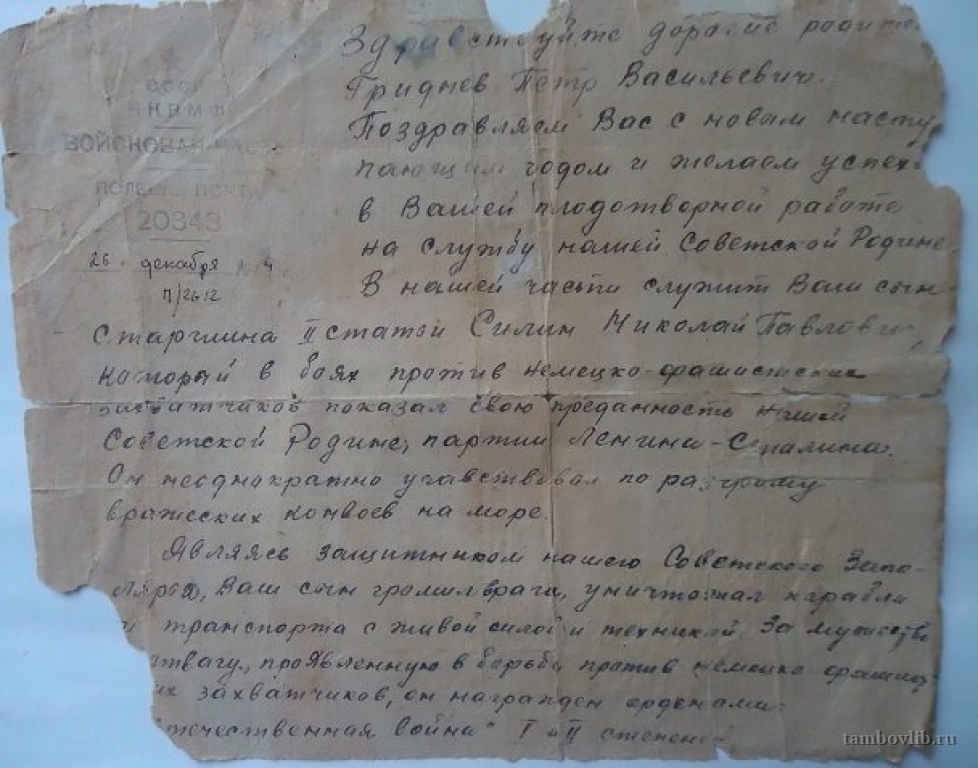 СССР
НКВМФ
ВОЙСКОВАЯ ЧАСТЬ
ПОЛЕВАЯ ПОЧТА
20343
26 декабря
П/2612
Здравствуйте дорогие родите
Гриднев Петр Васильевич.
Поздравляем Вас с новым насту
пающим годом и желаем успех
в Вашей плодотворной работе
на службу нашей Советской Родине
В нашей части служит Ваш сын
старшина II статьи Силин Николай Павлович,
который в боях против немецко-фашистских
захватчиков показал свою преданность нашей
Советской Родине, партии Ленина-Сталина.
Он неоднократно учавствовал по разгрому
вражеских конвоев на море.
Являясь защитником нашего Советского Запо-
лярья, Ваш сын громил врага, уничтожал корабли
и транспорта с живой силой и техникой. За мужество
отвагу, проявленную в борьбе против немецко фашист
их захватчиков, он награжден орденами:
течественная война" I и II степеней
tambovlib.ru